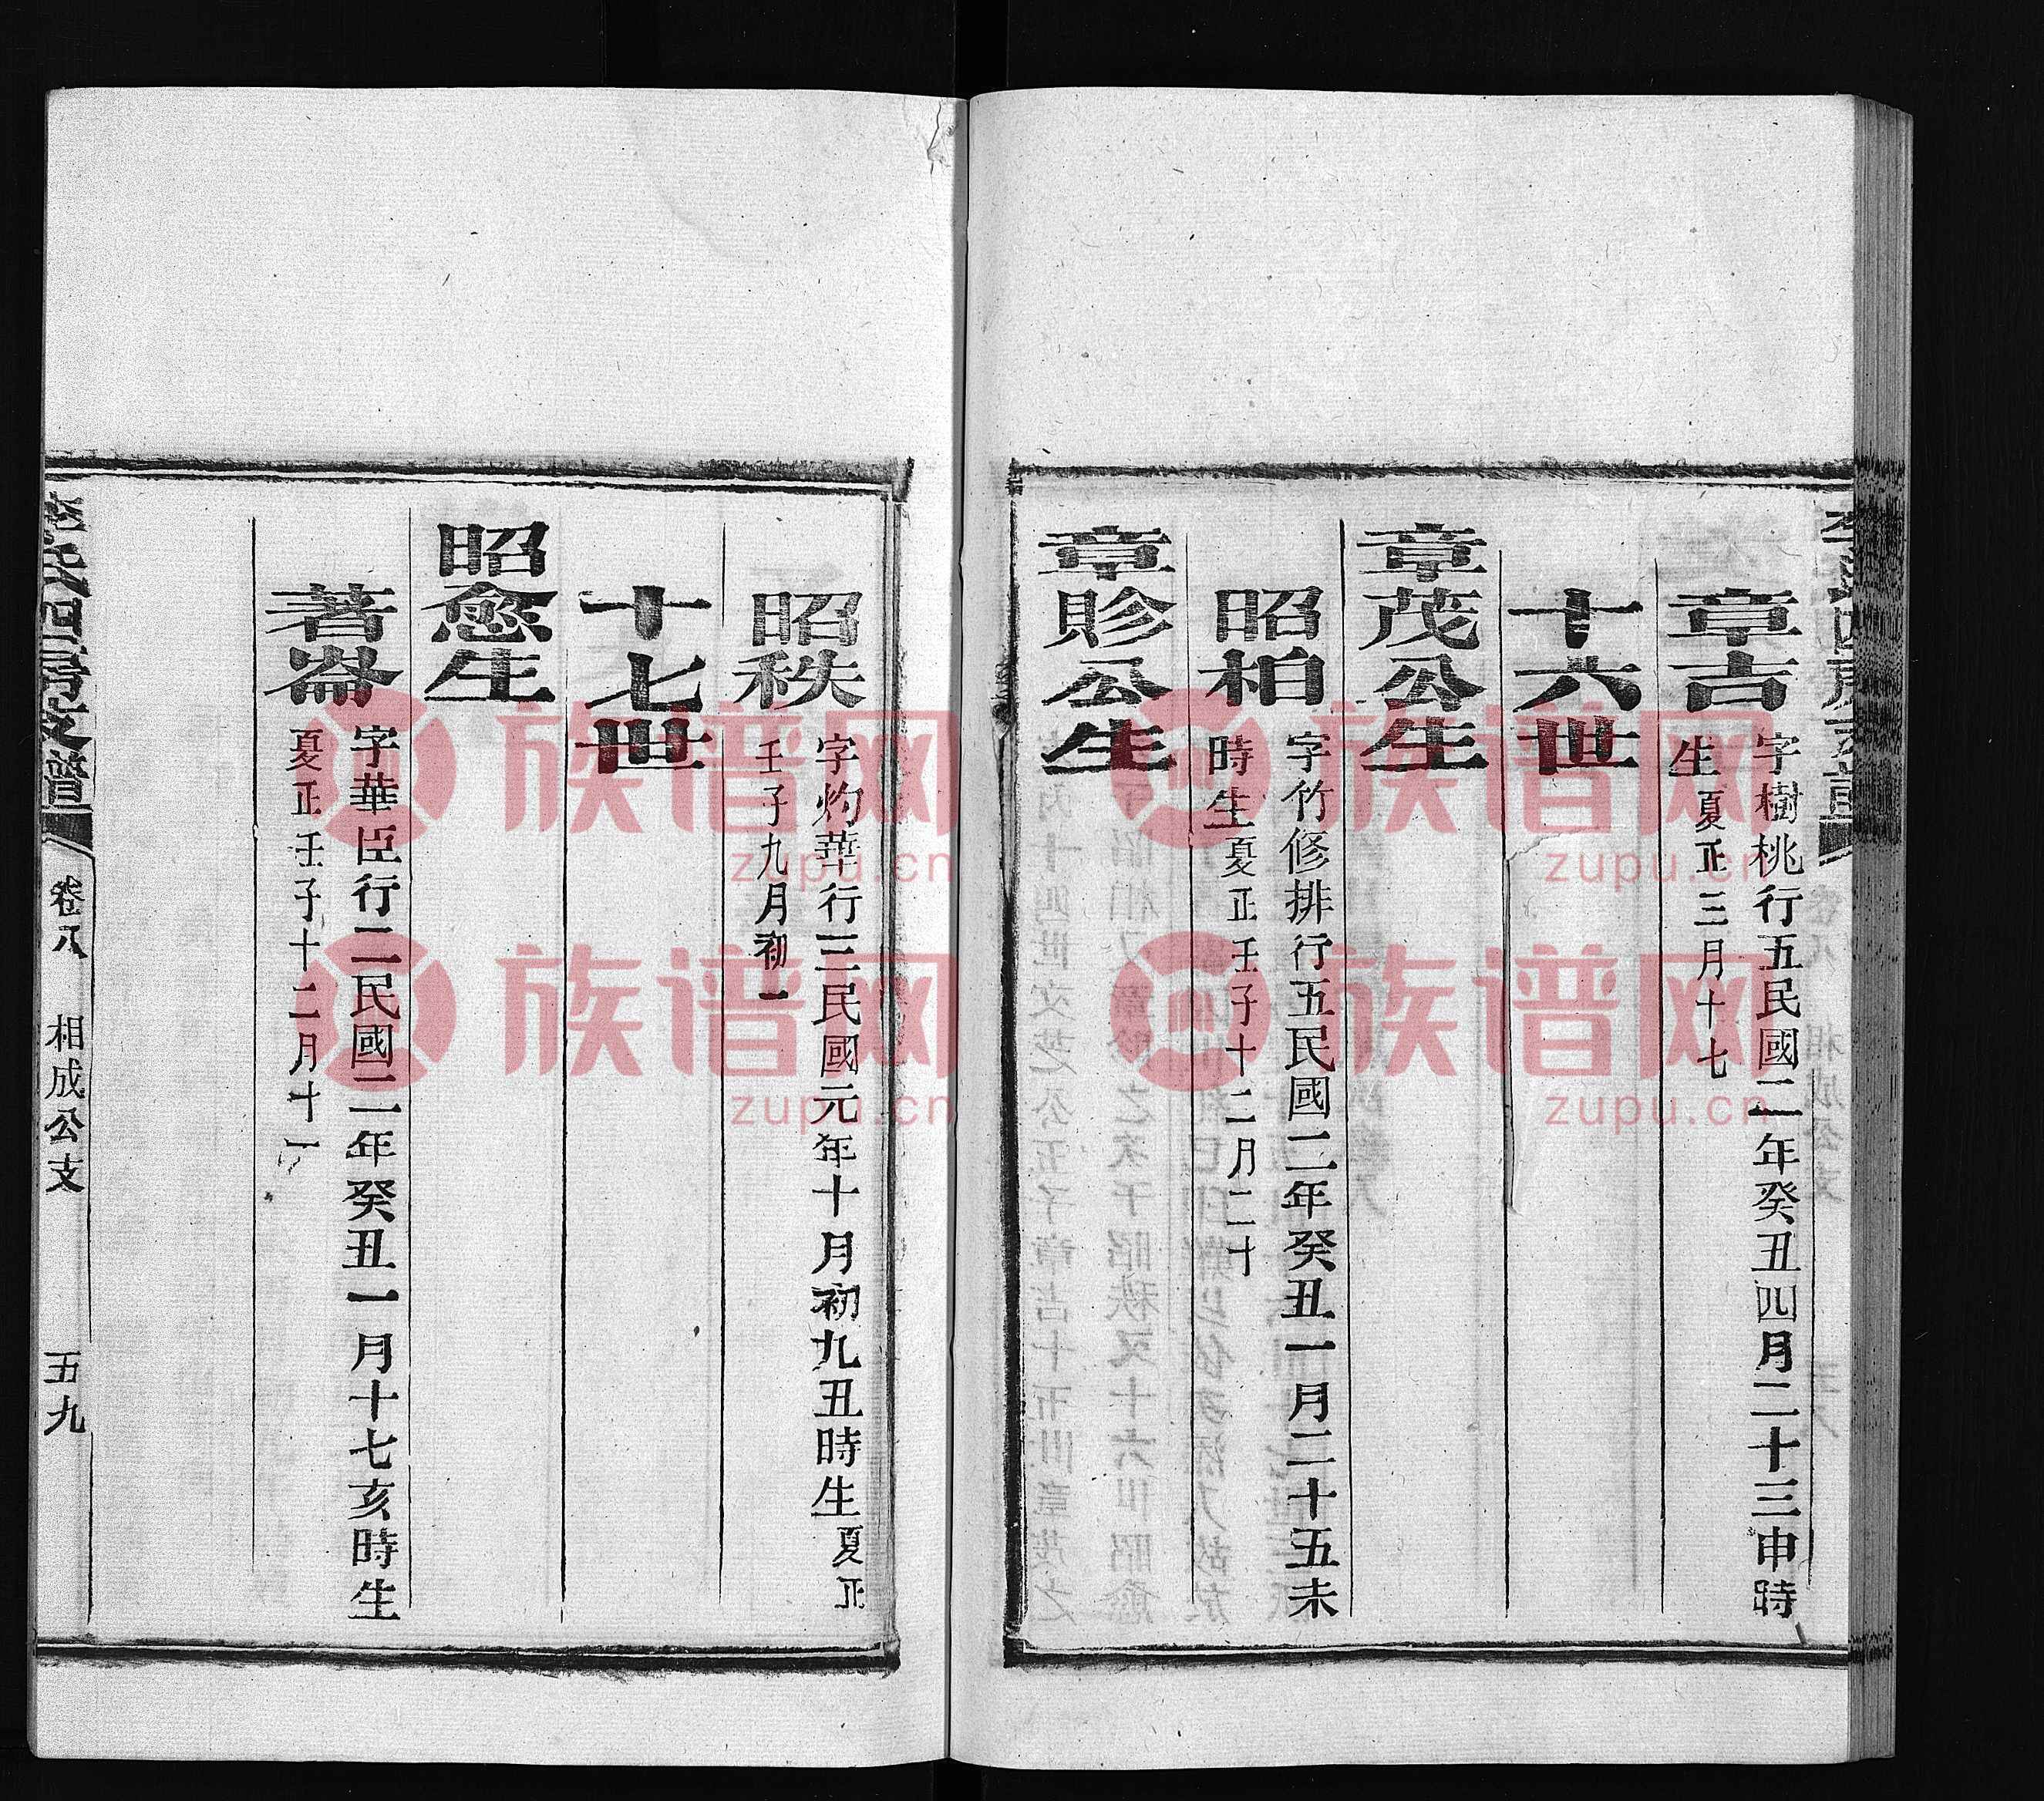 章吉 字樹桃行五民國二年癸丑四月二十三申時
生夏正三月十七
十六世
章茂公生
昭柏 字竹修排行五民國二年癸丑一月二十五未
時生夏正壬子十二月二十
章畛公生
昭秩 字灼華行三民國元年十月初九丑時生夏正
壬子九月初一
十七世
昭愈生
著崙 字華臣行二民國二年癸丑一月十七亥時生
夏正壬子十二月十一
李氏四房支譜 卷八 相成公支 五九
族谱网
zupu.cn
族谱网
zupu.cn
族谱网
zupu.cn
族谱网
zupu.cn